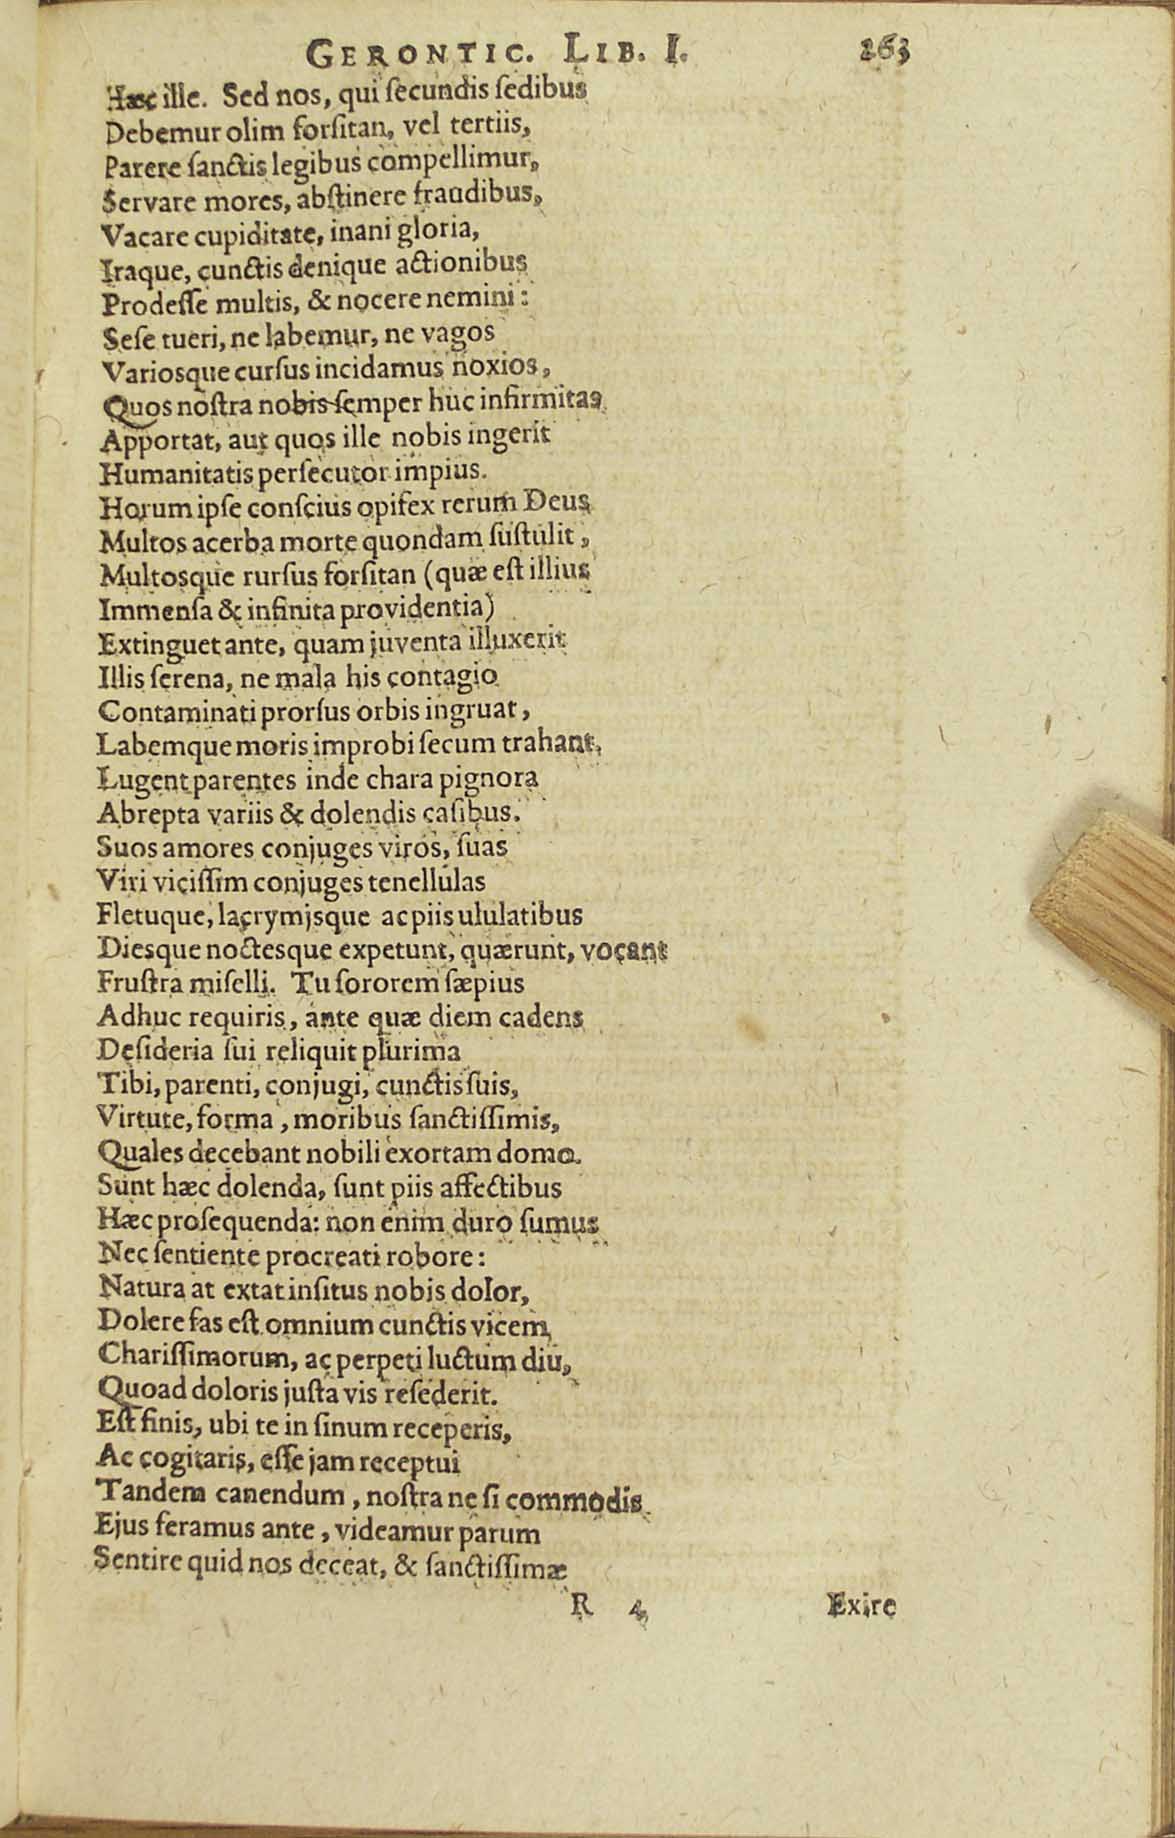 GERONTIC. LIB. I. 263
Hæc ille. Sed nos, qui ſecundis ſedibus
Debemur olim forſitan, vel tertiis,
Parere ſanctis legibus compellimur,
Servare mores, abſtinere fraudibus,
Vacare cupiditate, inani gloria,
Iraque, cunctis denique actionibus
Prodeſſe multis, & nocere nemini:
Seſe tueri, ne labemur, ne vagos
Variosque curſus incidamus noxios,
Quos noſtra nobis ſemper huc infirmitas
Apportat, aut quos ille nobis ingerit
Humanitatis perſecutor impius.
Horum ipſe conſcius opifex rerum Deus
Multos acerba morte quondam ſuſtulit,
Multosque rurſus forſitan (quæ eſt illius
Immenſa & infinita providentia)
Extinguet ante, quam juventa illuxerit
Illis ſerena, ne mala his contagio
Contaminati prorſus orbis ingruat,
Labemque moris improbi ſecum trahant.
Lugent parentes inde chara pignora
Abrepta variis & dolendis caſibus.
Suos amores conjuges viros, ſuas
Viri viciſſim conjuges tenellulas
Fletuque, lacrymisque ac piis ululatibus
Diesque noctesque expetunt, quærunt, vocant
Fruſtra miſelli. Tu ſororem ſæpius
Adhuc requiris, ante quæ diem cadens
Deſideria ſui reliquit plurima
Tibi, parenti, conjugi, cunctis ſuis,
Virtute, forma, moribus ſanctiſſimis,
Quales decebant nobili exortam domo.
Sunt hæc dolenda, ſunt piis affectibus
Hæc proſequenda: non enim duro ſumus
Nec ſentiente procreati robore:
Natura at extat inſitus nobis dolor,
Dolere fas eſt omnium cunctis vicem
Chariſſimorum, ac perpeti luctum diu,
Quoad doloris juſta vis reſederit.
Eſt finis, ubi te in ſinum receperis,
Ac cogitaris, eſſe jam receptui
Tandem canendum, noſtra ne ſi commodis
Ejus feramus ante, videamur parum
Sentire quid nos deceat, & ſanctiſſimæ
R 4 Exire